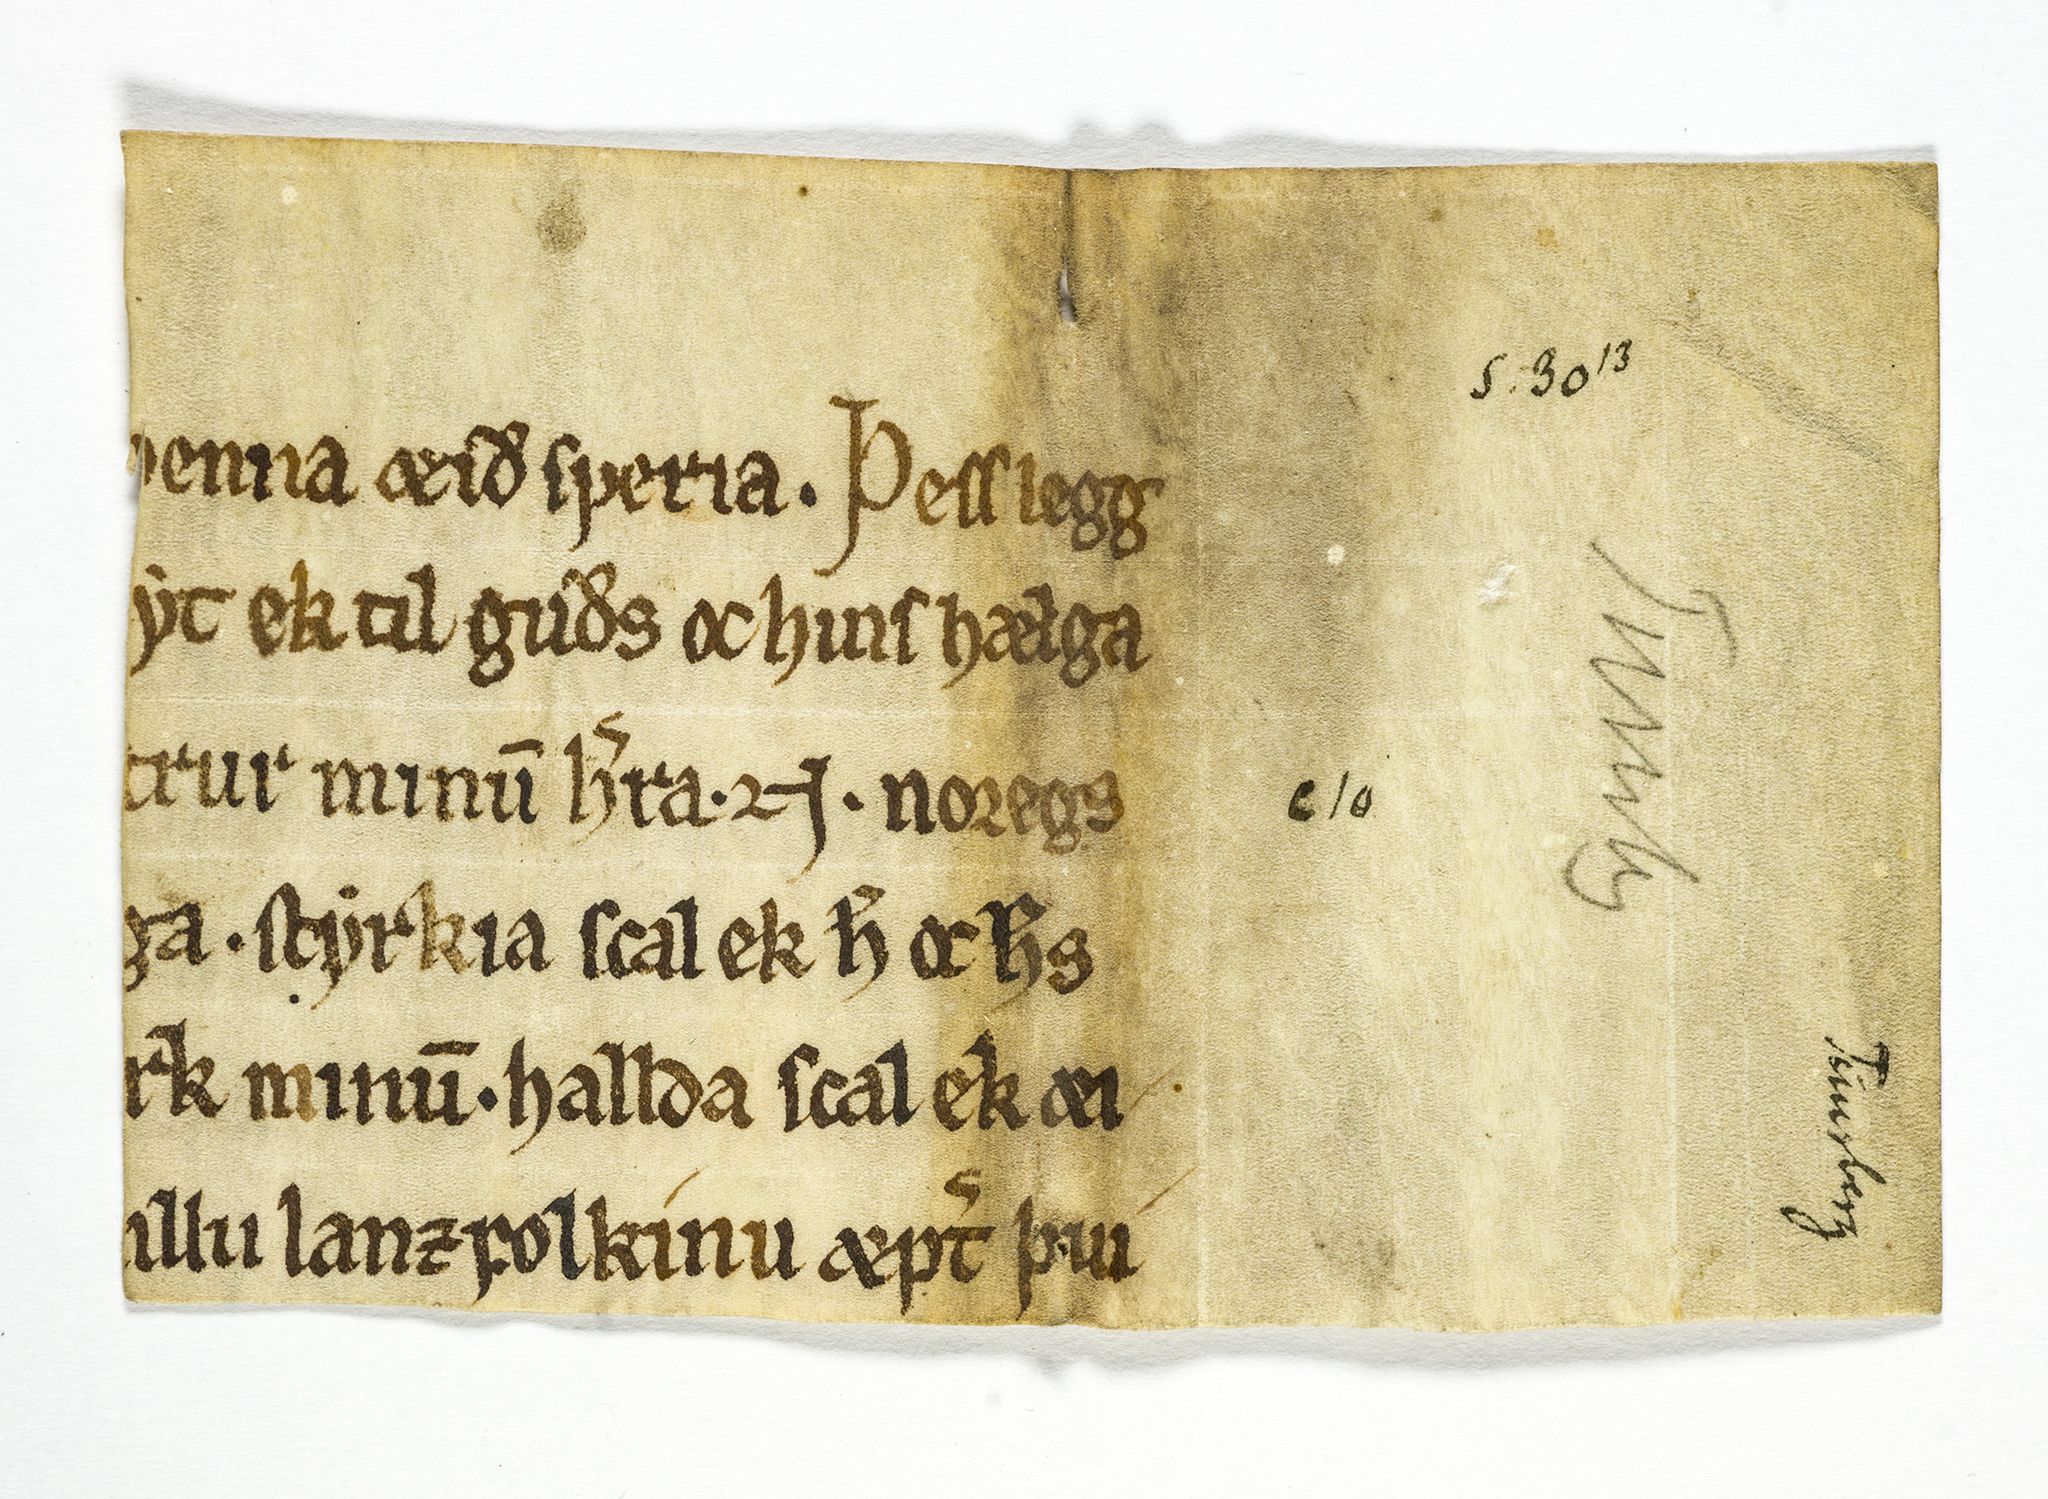 þenna æið sƿeria. Þess legg
ẏt ek til guðs oc hins hælga
trur minū h̾ra · ⁊ · noregs
ga · stẏrkia scal ek h̅ oc h̅s
rk minū · hallda scal ek æi
illu lanzfolkinu æpt̾ þui
S. 30¹³
c/o
Tunsbg
Tunsberg